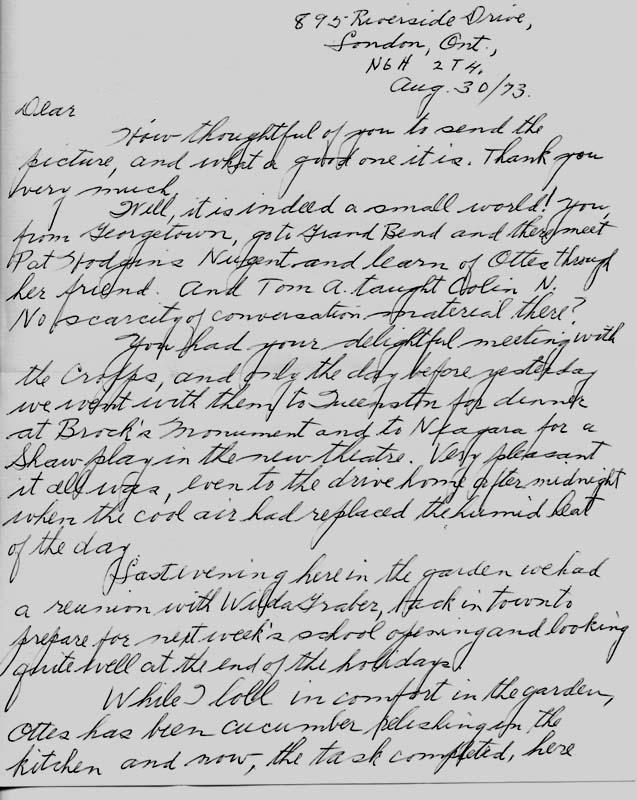 895 Riverside Drive,
London, Ont.,
N6H 2T4.
Aug. 30/73.
Dear
How thoughtful of you to send the
picture, and what a good one it is. Thank you
very much.
Well, it is indeed a small world! You,
from Georgetown, go to Grand Bend and there meet
Pat Hodgins Nugent and learn of Ottes through
her friend. And Tom A. taught Colin N.
No scarcity of conversation material there?
You had your delightful meeting with
the Cropps, and only the day before yesterday
we went with them to Queenston for dinner
at Brock's Monument and to Niagara for a
Shaw play in the new theatre. Very pleasant
it all was, even to the drive home after midnight
when the cool air had replaced the humid heat
of the day.
Last evening here in the garden we had
a reunion with Wilda Graber, back in town to
prepare for next week's school opening and looking
quite well at the end of the holidays.
While I loll in comfort in the garden,
Ottes has been cucumber relishing in the
kitchen and now, the task completed, here